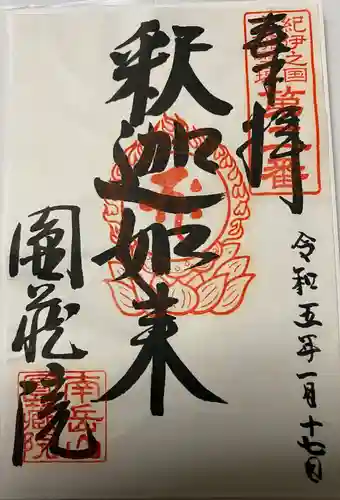 奉拝
紀伊之国
令和五年一月十七日
釈迦如来
圓蔵院
南岳山